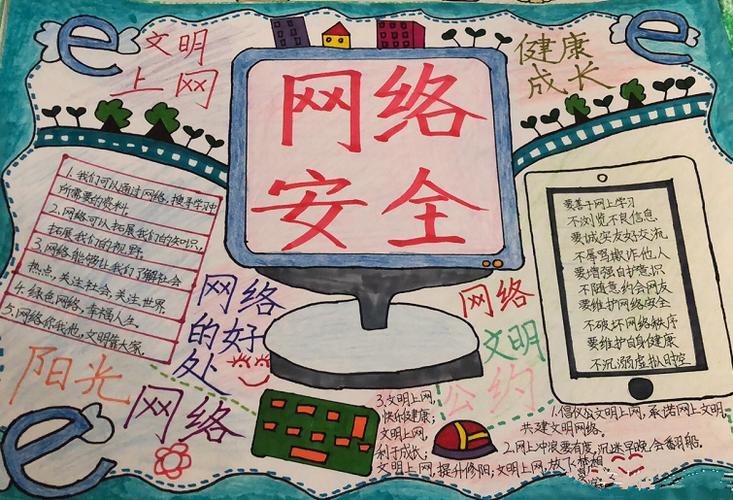 文明
上网
健康
成长
网络
安全
1.我们可以通过网络,搜寻学习中
所需要的资料.
2.网络可以拓展我们的知识,
拓展我们的视野.
3.网络能够让我们了解社会
热点,关注社会,关注世界.
4.绿色网络,幸福人生.
5.网络你我他,文明靠大家.
网络
的好
处
阳光
网络
网络
文明
公约
要善于网上学习
不浏览不良信息
要诚实友好交流
不辱骂欺诈他人
要增强自护意识
不随意约会网友
要维护网络安全
不破坏网络秩序
要维护自身健康
不沉溺虚拟时空
3.文明上网,
快乐健康;
文明上网,
利于成长;
文明上网,提升修阳;文明上网,放飞梦想
1.倡仪公文明上网,承诺网上文明,
共建文明网络.
2.网上冲浪要有度,沉迷早晚会翻船.
e
e
e